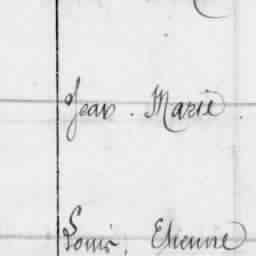 Jean. Marie.
Louis. Etienne